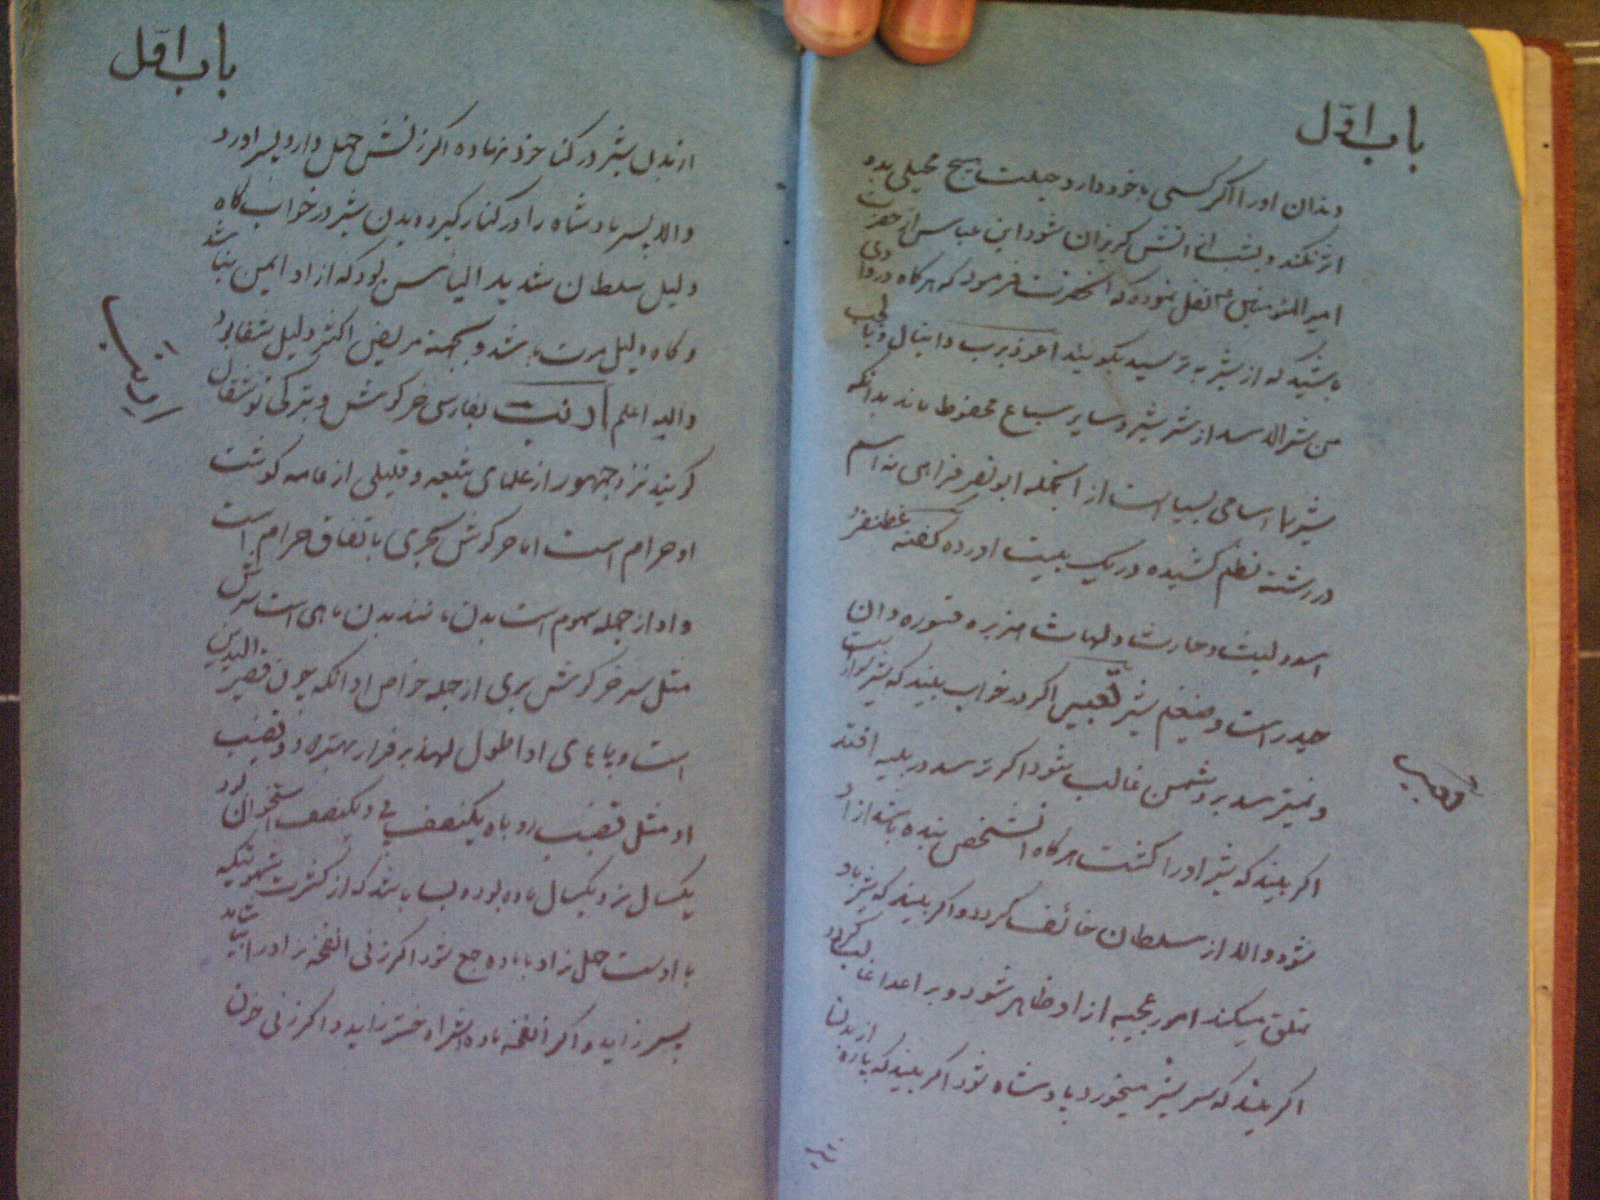 باب اوّل
دندان او را اگر کسی با خود دارد جبلت هیچ محیلی بدو
اثر نکند و بشب از اتش گریزان شود ابن عباس از حضرت
امیر المومنین نقل نموده که انحضرت فرمود که هرگاه در وادی
باشید که از شیر بترسید بگویید اعوذ برب دانیال و بالجب
من شر الاسد از شر شیر و سایر سباع محفوظ ماند بدانکه
شیر را اسامی بسیار است از انجمله ابو نصر فراهی نه اسم
در رشته نظم کشیده در یک بیت اورده گفته غضنفر و
اسد و لیث و حارث و دلهاث هزبره قسوره و ان
حیدر است و ضیغم شیر تعبیر اگر در خواب بیند که شیر نواز نیست
و نمیترسد بر دشمن غالب شود اگر ترسد در بلیه افتد
اگر بیند که شیر او را کشت هرگاه انشخص بنده باشد ازاد
شود و الا از سلطان خائف گردد و اگر بیند که شیر باو
تملق میکند امور عجیبه از او ظاهر شود و بر اعدا غالب گردد
اگر بیند که سر شیر میخورد پادشاه شود اگر بیند که پاره از بدن
باب اوّل
از بدن شیر در کنار خود نهاده اگر زنش حمل دارد پسر اورد
والا پسر پادشاه را در کنار گیرد و بدن شیر در خواب گاه
دلیل سلطان شدید الباس بود که از او ایمن نباشد
و گاه دلیل مرت باشد و بجهته مریض اکثر دلیل شفا بود
والله اعلم ارنب بفارسی خرگوش و بترکی توشقان
گویند نزد جمهور از علمای شیعه و قلیلی از عامه گوشت
او حرام است اما خرگوش بحری باتفاق حرام است
و او از جمله سموم است بدن مانند بدن ماهی است سرش
مثل سر خرگوش بری از جمله خواص او انکه چون قصیر الیدین
است و پاهای او اطول لهذا بر فراز بهتر رود و قضیب
او مثل قضیب روباه یکنصف پی و یکنصف استخوان بود
یکسال نر و یکسال ماده بوده بسا باشد که از کثرت شهوتیکه
با اوست حمل نر او با ماده جمع شود اگر زنی انفحه نر او را بیاشامد
پسر زاید و اگر انفحه ماده اشرا دختر زاید و اگر زنی خون